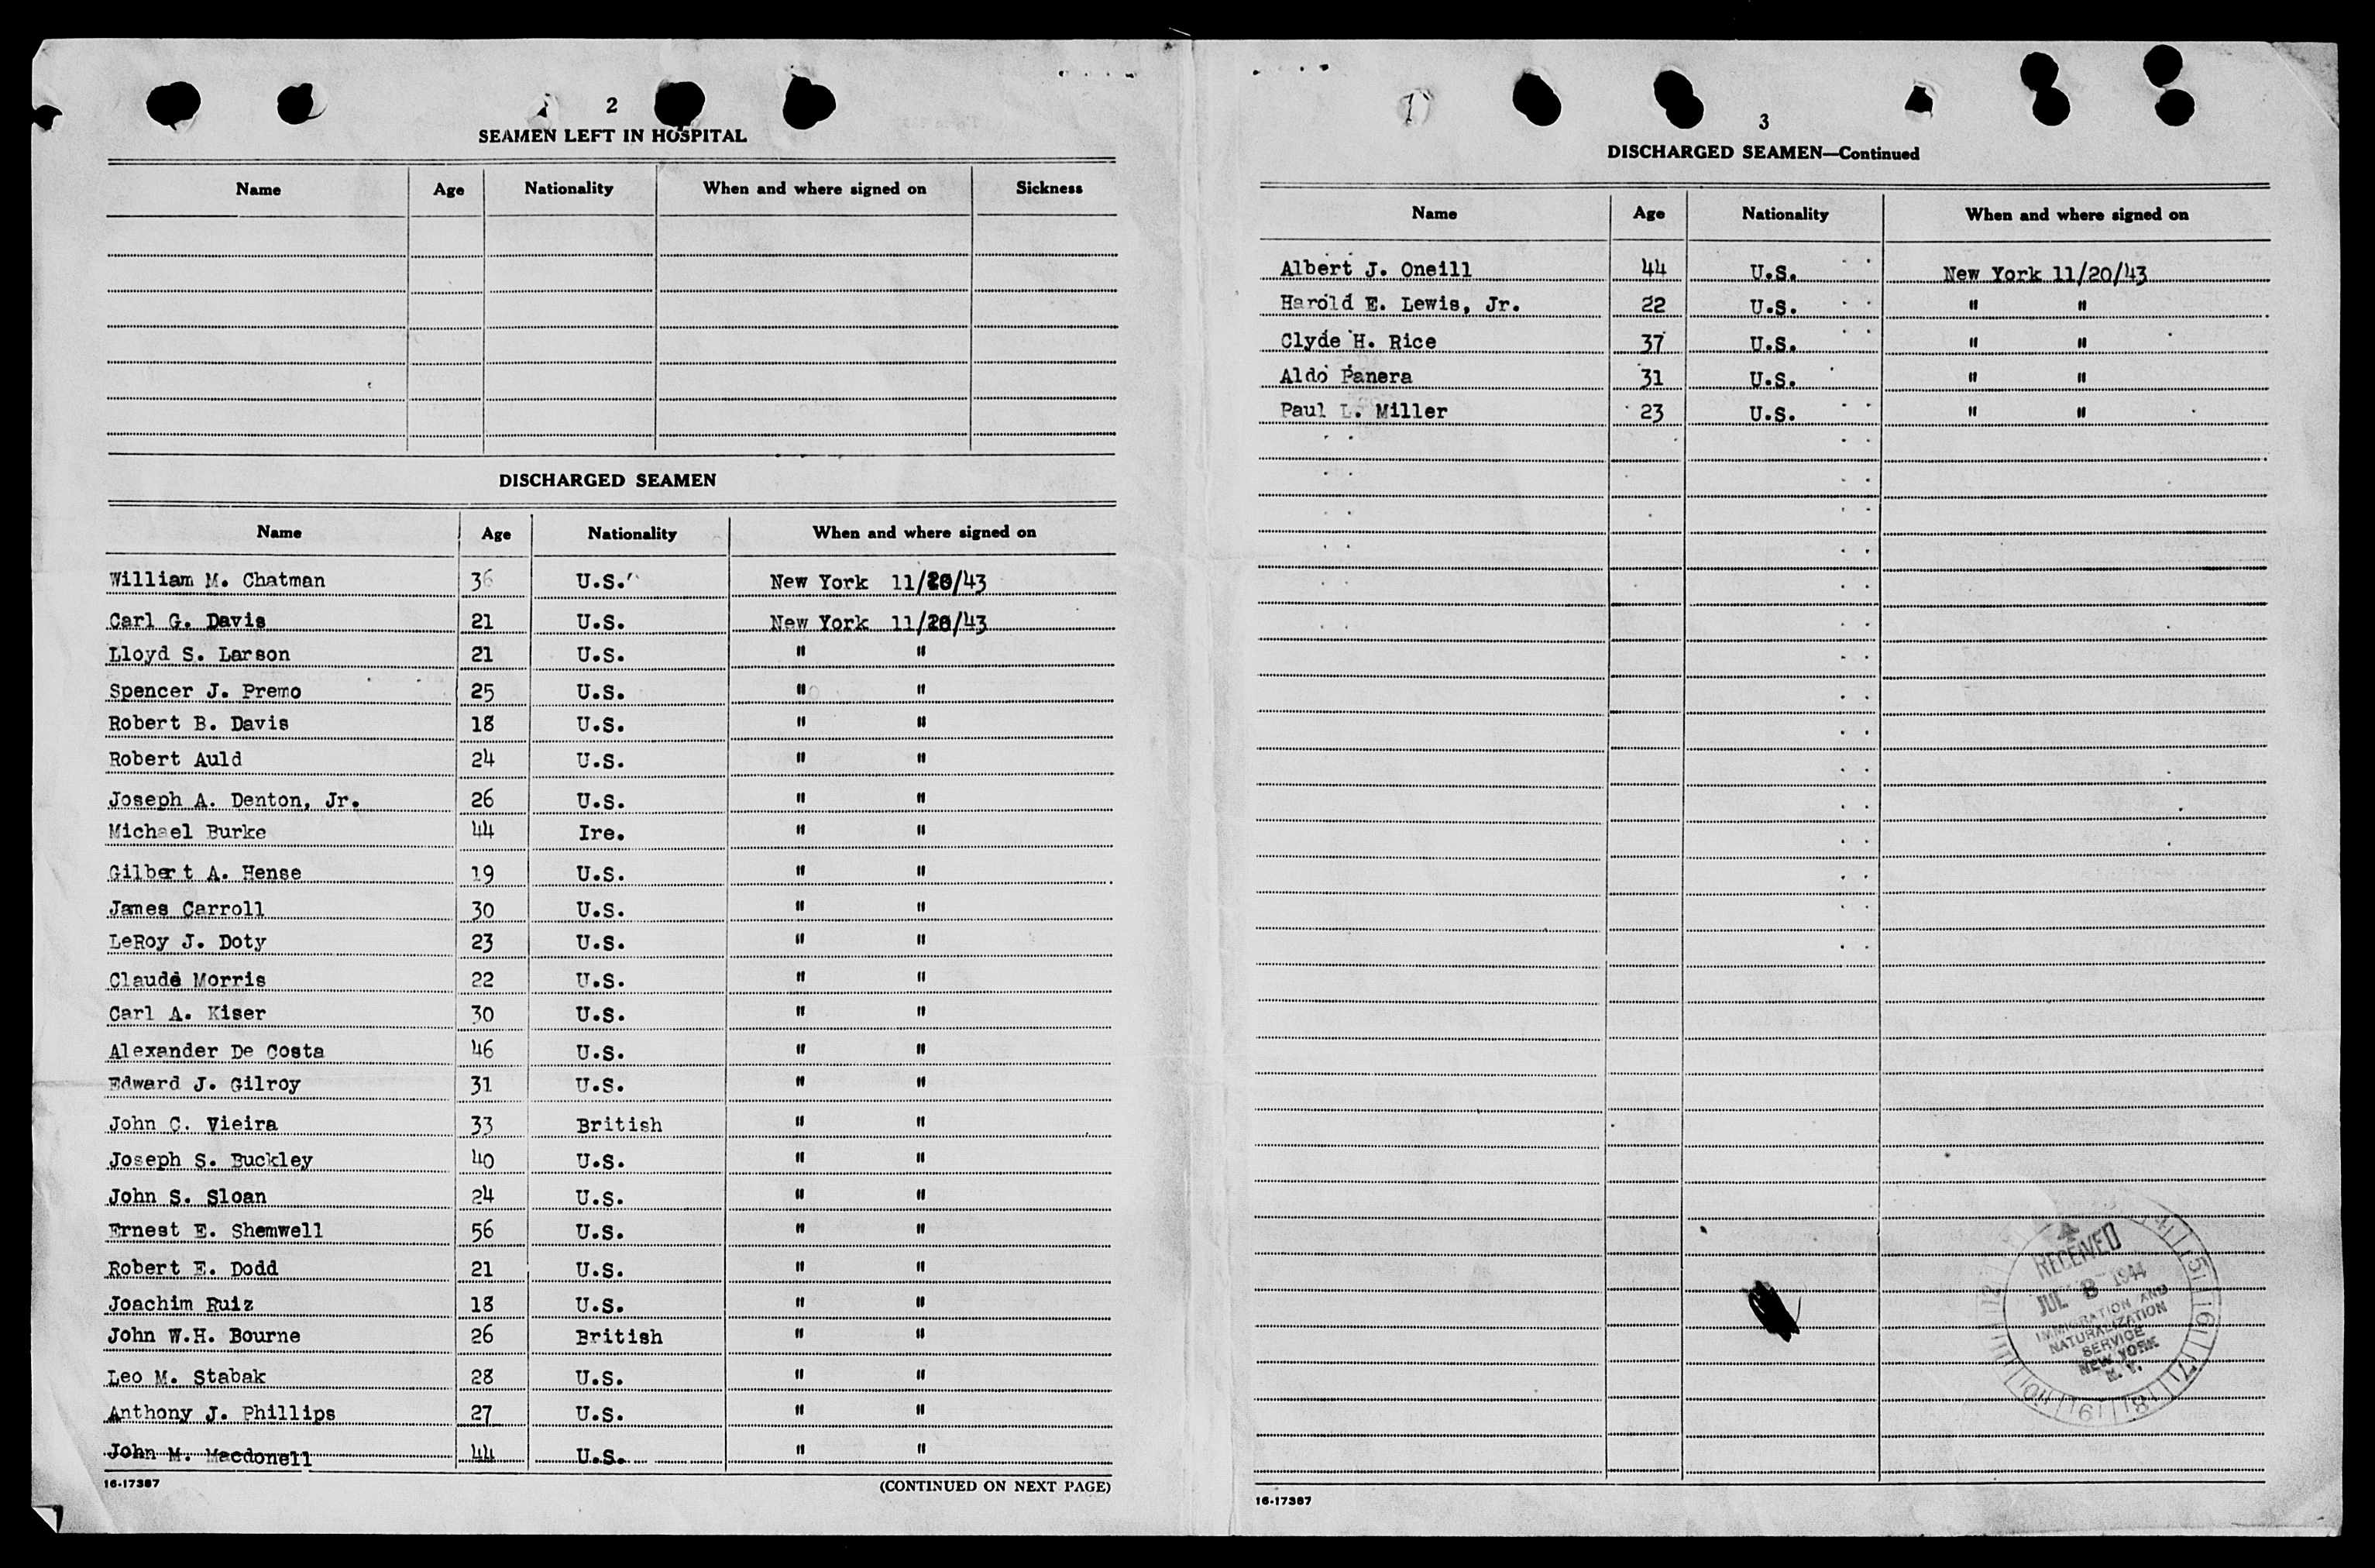 2
SEAMEN LEFT IN HOSPITAL
Name Age Nationality When and where signed on Sickness
DISCHARGED SEAMEN
Name Age Nationality When and where signed on
William M. Chatman 36 U.S. New York 11/20/43
Carl G. Davis 21 U.S. New York 11/20/43
Lloyd S. Larson 21 U.S. " "
Spencer J. Premo 25 U.S. " "
Robert B. Davis 18 U.S. " "
Robert Auld 24 U.S. " "
Joseph A. Denton, Jr. 26 U.S. " "
Michael Burke 44 Ire. " "
Gilbert A. Hense 19 U.S. " "
James Carroll 30 U.S. " "
LeRoy J. Doty 23 U.S. " "
Claude Morris 22 U.S. " "
Carl A. Kiser 30 U.S. " "
Alexander De Costa 46 U.S. " "
Edward J. Gilroy 31 U.S. " "
John C. Vieira 33 British " "
Joseph S. Buckley 40 U.S. " "
John S. Sloan 24 U.S. " "
Ernest E. Shemwell 56 U.S. " "
Robert E. Dodd 21 U.S. " "
Joachim Ruiz 18 U.S. " "
John W.H. Bourne 26 British " "
Leo M. Stabak 28 U.S. " "
Anthony J. Phillips 27 U.S. " "
John M. Macdonell 44 U.S. " "
16-17387 (CONTINUED ON NEXT PAGE)
3
DISCHARGED SEAMEN—Continued
Name Age Nationality When and where signed on
Albert J. Oneill 44 U.S. New York 11/20/43
Harold E. Lewis, Jr. 22 U.S. " "
Clyde H. Rice 37 U.S. " "
Aldo Panera 31 U.S. " "
Paul L. Miller 23 U.S. " "
RECEIVED
JUL 8 1944
IMMIGRATION AND
NATURALIZATION
SERVICE
NEW YORK
N. Y.
16-17387